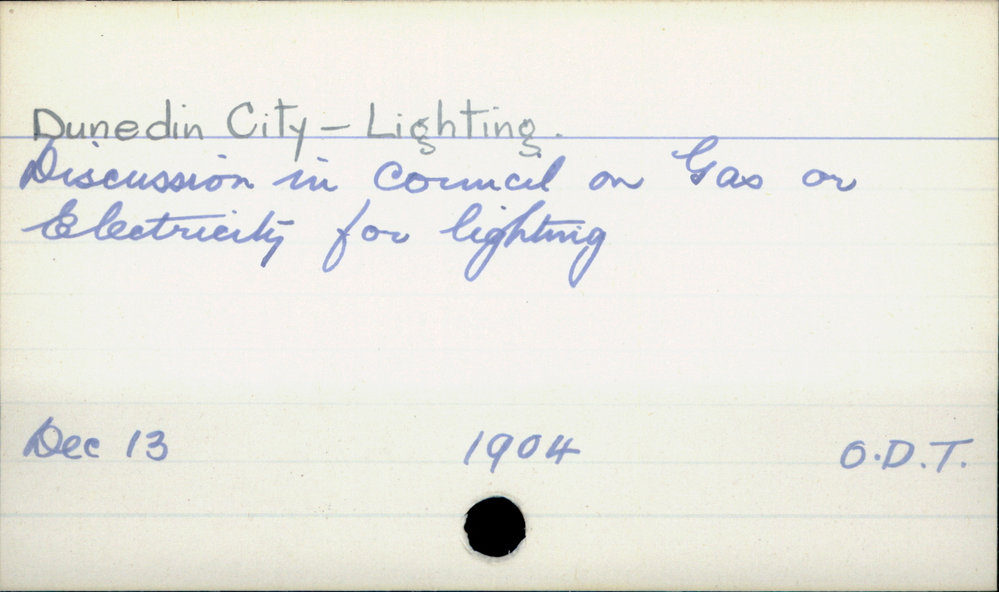 Dunedin City – Lighting.
Discussion in Council on Gas or
Electricity for lighting
Dec 13 1904 O.D.T.